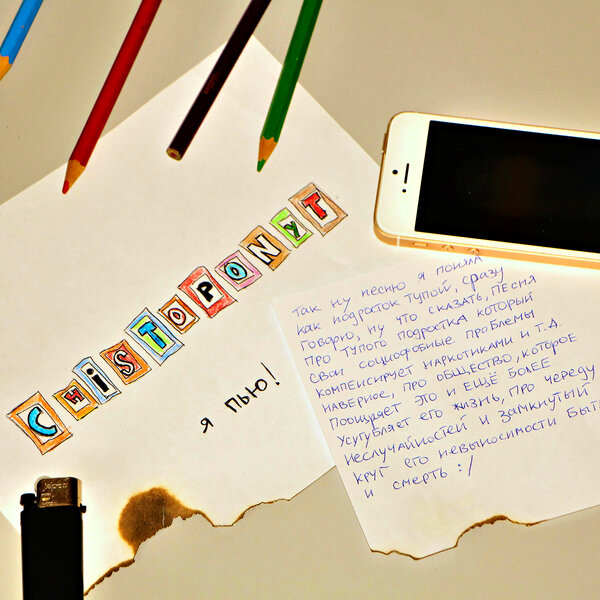 CHiSTOPONYT
я пью!
Так ну песню я поняла
как подросток тупой, сразу
говорю, ну что сказать, песня
про тупого подростка который
свои социофобные проблемы
компенсирует наркотиками и т.д.
наверное, про общество, которое
поощряет это и ещё более
усугубляет его жизнь, про череду
неслучайностей и замкнутый
круг его невыносимости быть
и смерть :/